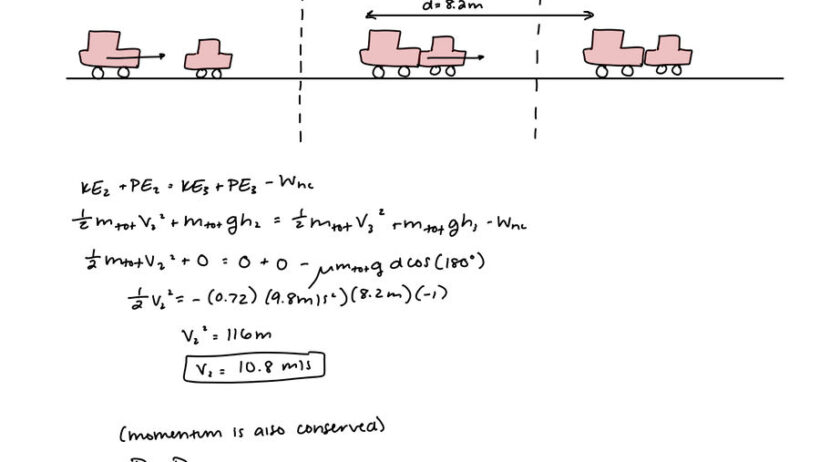 d = 8.2m
KE₂ + PE₂ = KE₃ + PE₃ - Wnc
½ mtot V₂² + mtot gh₂ = ½ mtot V₃² + mtot gh₃ - Wnc
½ mtot V₂² + 0 = 0 + 0 - μmtot g d cos(180°)
½ V₂² = - (0.72) (9.8m/s²)(8.2m)(-1)
V₂² = 116m
V₂ = 10.8 m/s
(momentum is also conserved)